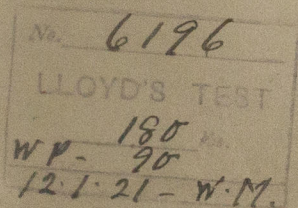 No. 6196
LLOYD'S TEST
180 Lbs.
W P - 90
12.1.21 - W.M.